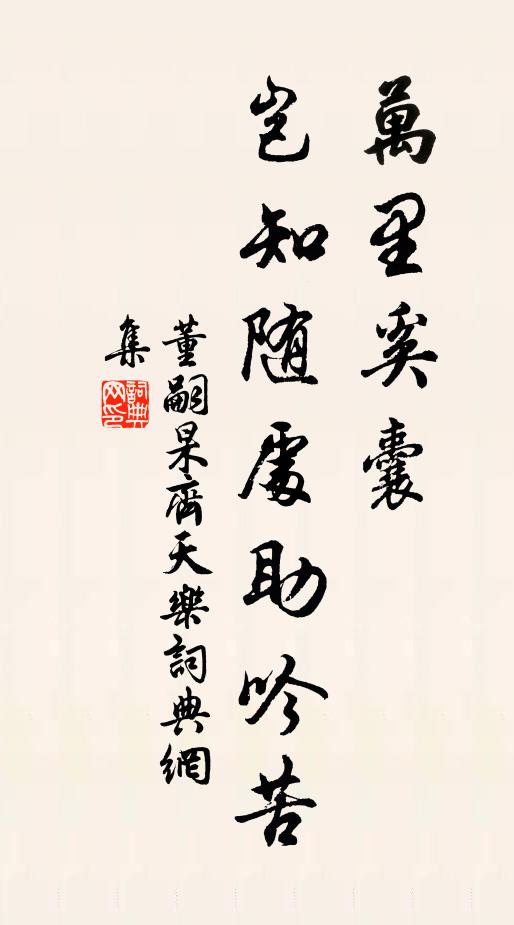 萬里奚囊
豈知随處助吟苦
董嗣杲齊天樂詞典網
集
詞典網印